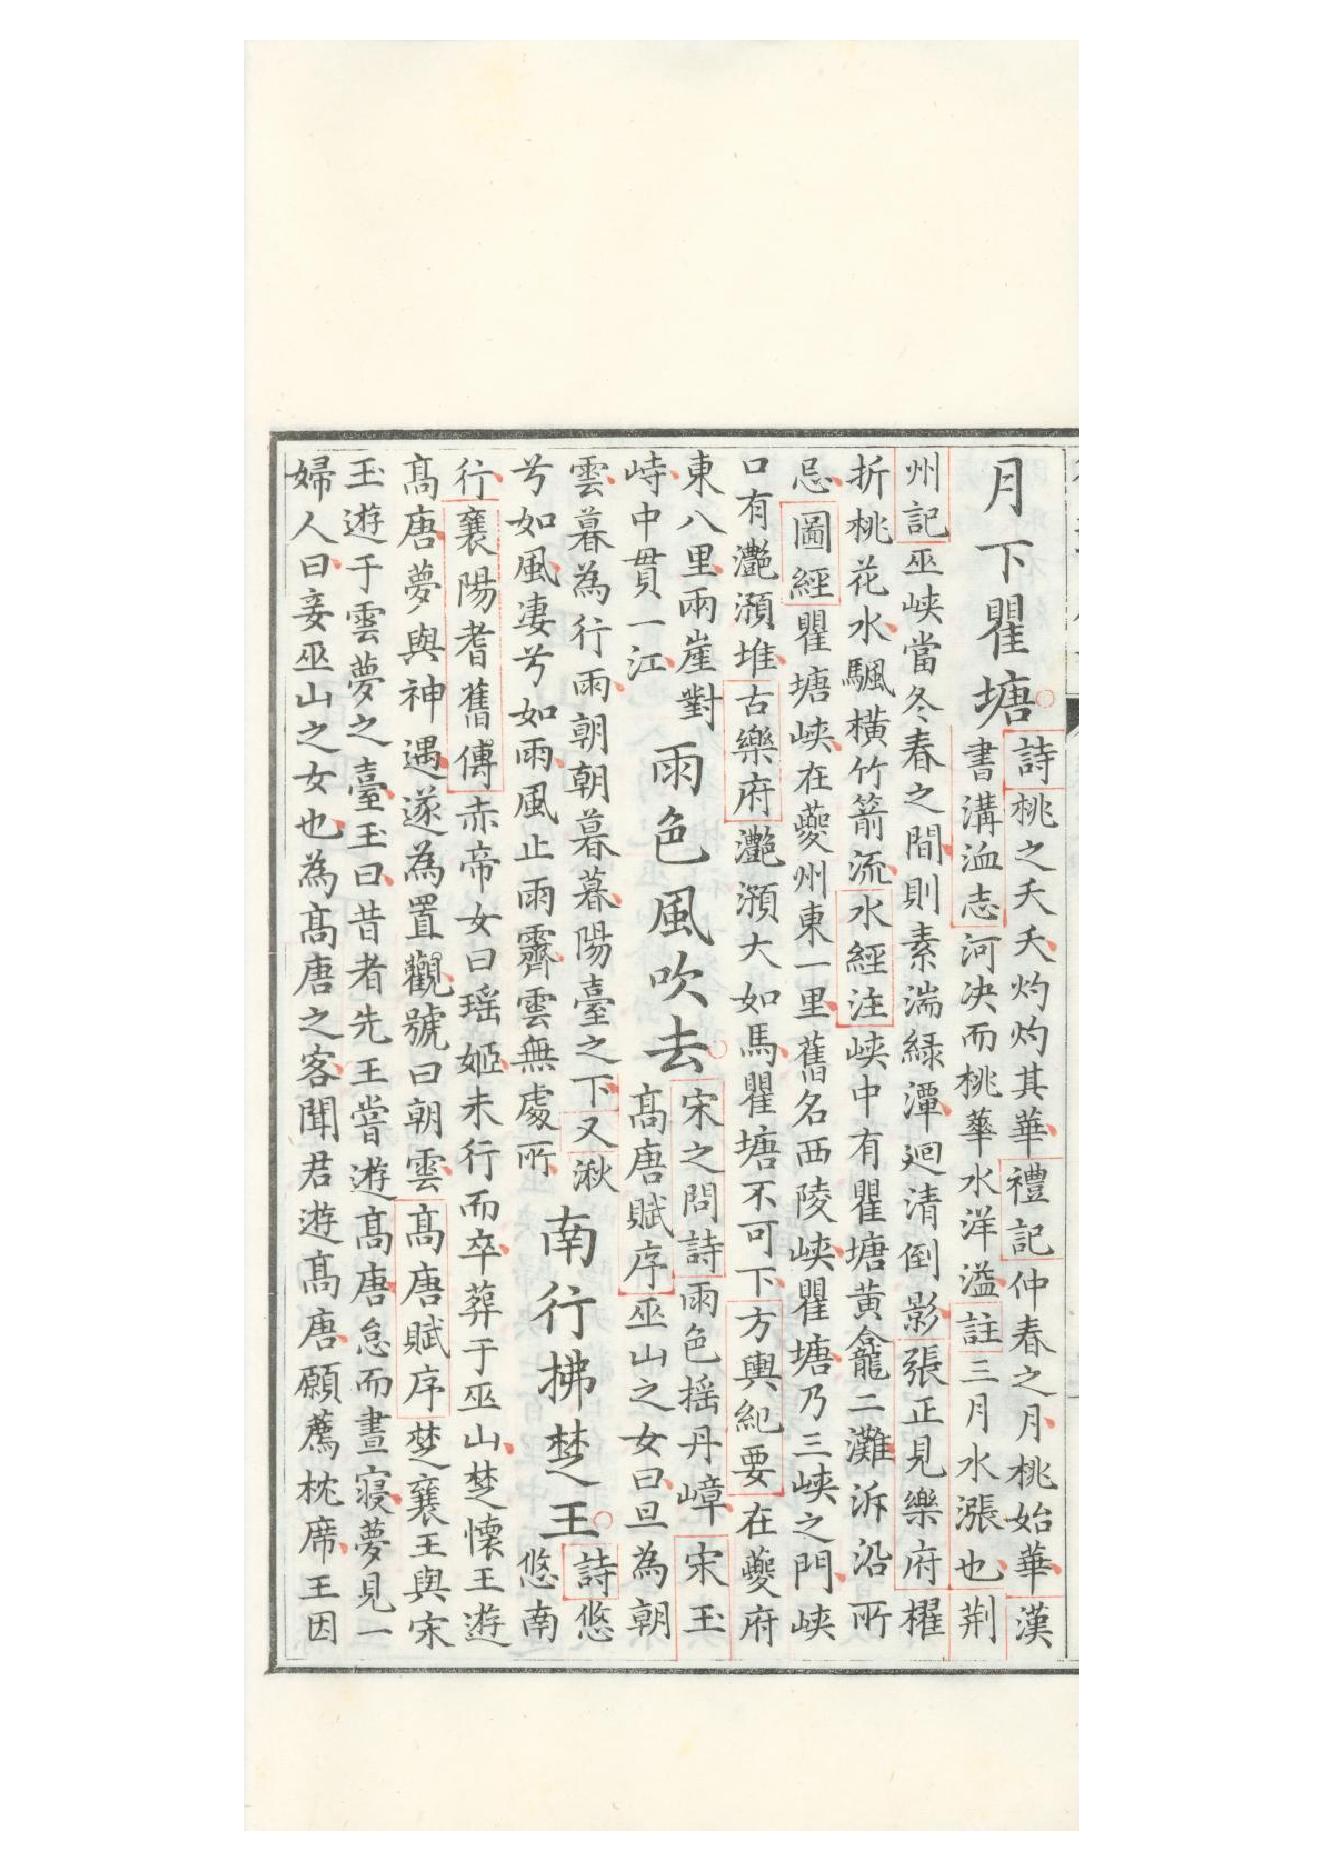 月下瞿塘
詩桃之夭夭灼灼其華禮記仲春之月桃始華漢
書溝洫志河决而桃華水洋溢註三月水漲也荆
州記巫峽當冬春之間則素湍緑潭迴清倒影張正見樂府櫂
折桃花水颿橫竹箭流水經注峽中有瞿塘黄龕二灘泝沿所
忌圖經瞿塘峽在夔州東一里舊名西陵峽瞿塘乃三峽之門峽
口有灔澦堆古樂府灔澦大如馬瞿塘不可下方輿紀要在夔府
東八里兩崖對
峙中貫一江
雨色風吹去
宋之問詩雨色揺丹嶂宋玉
髙唐賦序巫山之女曰旦為朝
雲暮為行雨朝朝暮暮陽臺之下又湫
兮如風淒兮如雨風止雨霽雲無處所
南行拂楚王
詩悠
悠南
行襄陽耆舊傅赤帝女曰瑶姬未行而卒葬于巫山楚懷王遊
髙唐夢與神遇遂為置觀號曰朝雲髙唐賦序楚襄王與宋
玉遊于雲夢之臺玉曰昔者先王嘗遊髙唐怠而晝寢夢見一
婦人曰妾巫山之女也為髙唐之客聞君遊髙唐願薦枕席王因